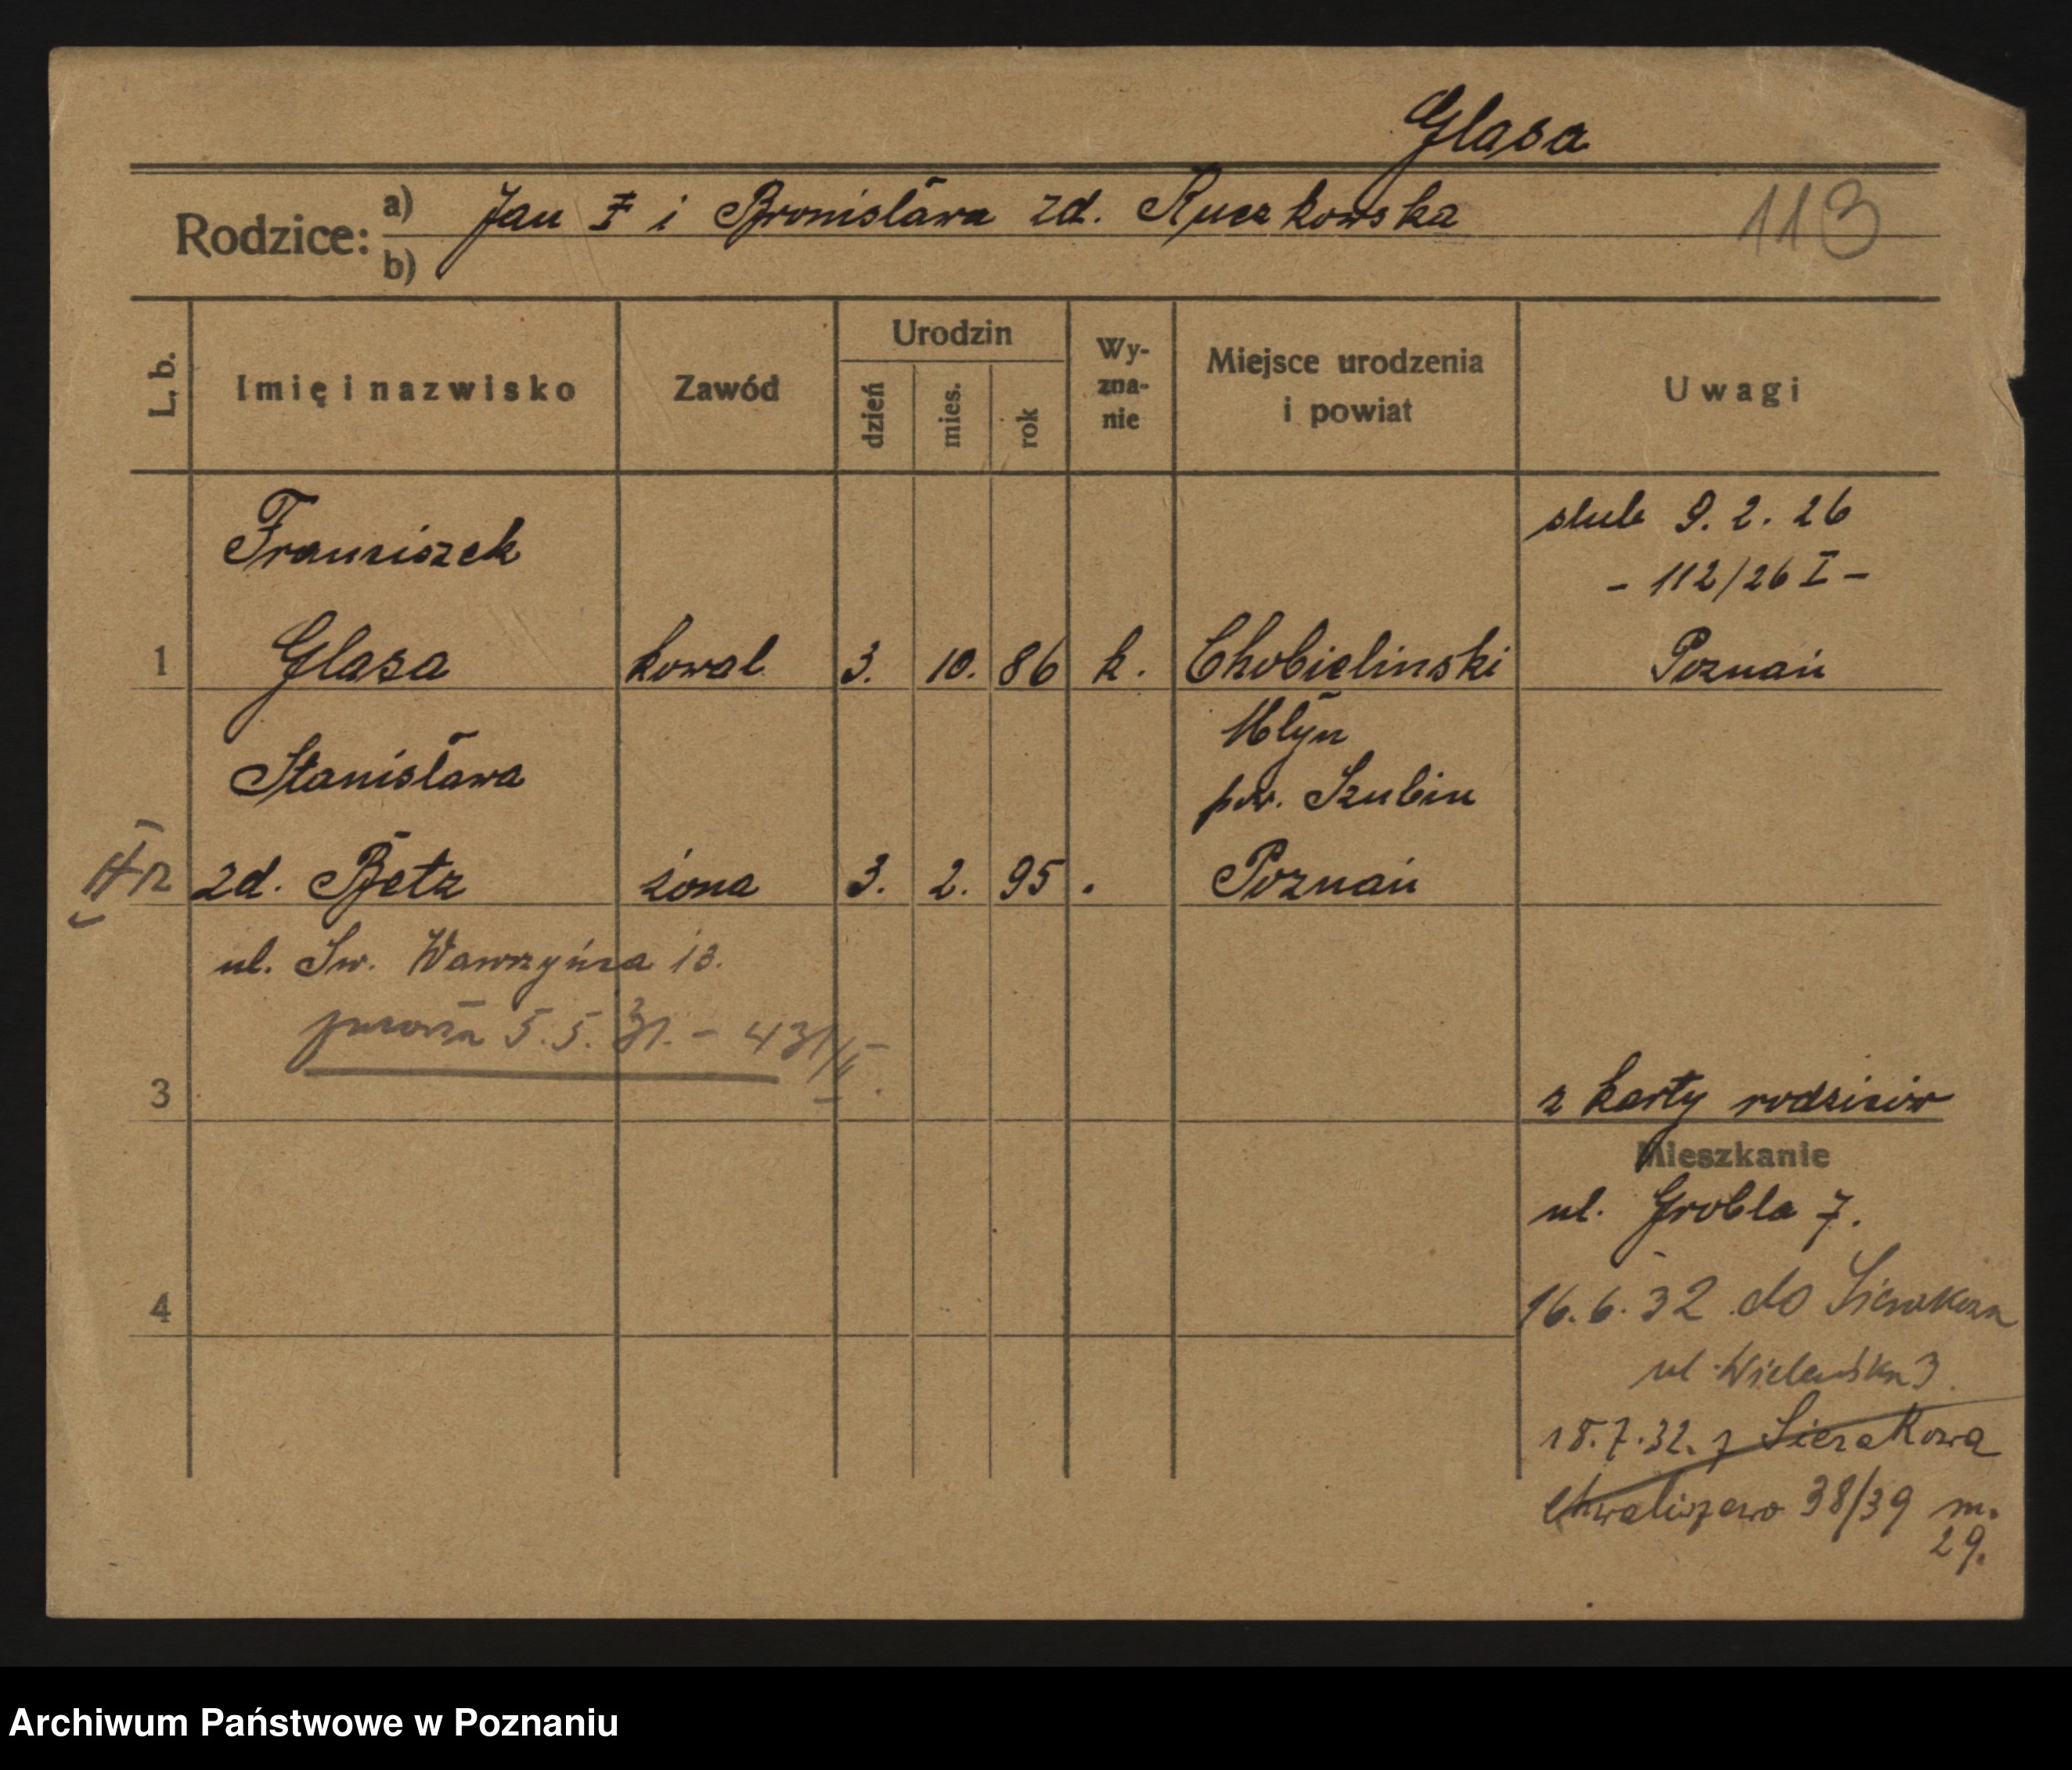 Glasa
Rodzice: a) Jan I i Bronisława zd. Ruczkowska
b)
113
L. b.
Imię i nazwisko
Zawód
Urodzin
dzień
mies.
rok
Wy-
zna-
nie
Miejsce urodzenia
i powiat
Uwagi
Franciszek
ślub 9. 2. 26
- 112/26 I -
1 Glasa kowal 3. 10. 86 k. Chobielinski Poznań
Młyn
Stanisława
pow. Szubin
zd. Betz żona 3. 2. 95 . Poznań
ul. Św. Wawrzyńca 13.
5.5.31. - 431/II.
3
z karty rodziców
Mieszkanie
ul. Grobla 7.
4
16.6.32 do Sierakowa
ul. Wieleńska 3.
18.7.32. z Sierakowa
Chwaliszewo 38/39 m.
29.
Archiwum Państwowe w Poznaniu